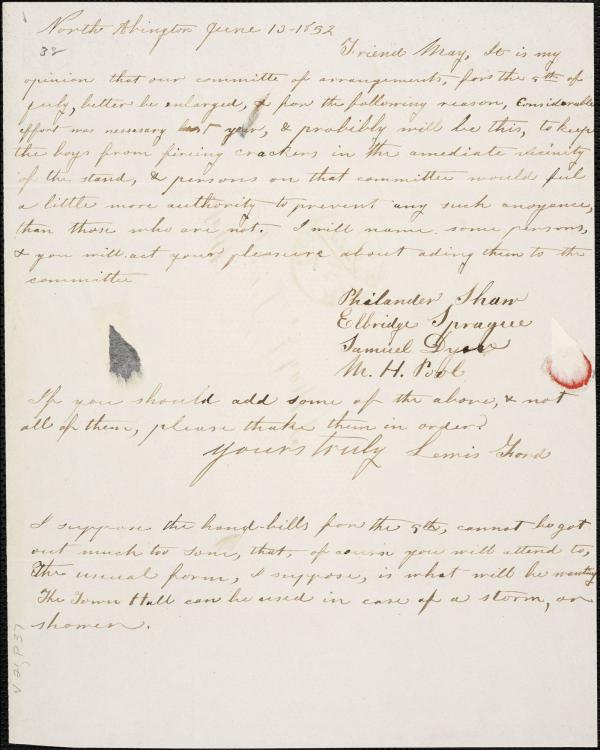 North Abington June 13-1852
38
Friend May, It is my
opinion that our committe of arrangements, for the 5th of
july, better be enlarged, & for the following reason, Considerable
effort was necessary last year, & probibly will be this, to keep
the boys from fireing crackers in the amediate vicinity
of the stand, & persons on that committee would feel
a little more authority to prevent any such anoyance,
than those who are not. I will name some persons,
& you will act your pleasure about ading them to the
committee
Philander Shaw
Elbridge Sprague
Samuel Dyer
M. H. Pool
If you should add some of the above, & not
all of them, please thake them in order.
yours truly Lewis Ford
I suppose the hand-bills for the 5th, cannot be got
out much too sone, that, of course you will attend to,
The usual form, I suppose, is what will be wanting
The Town Hall can be used in case of a storm, or
shower.